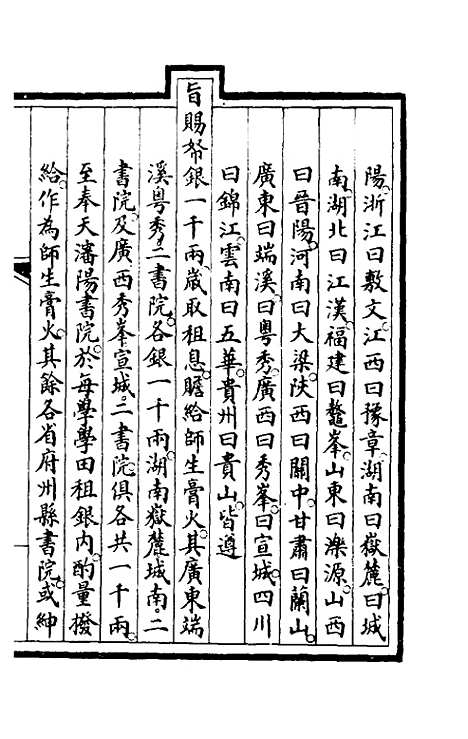 陽浙江曰敷文江西曰豫章湖南曰嶽麓曰城
南湖北曰江漢福建曰鼇峯山東曰濼源山西
曰晉陽河南曰大梁陝西曰關中甘肅曰蘭山
廣東曰端溪曰粵秀廣西曰秀峯曰宣城四川
曰錦江雲南曰五華貴州曰貴山皆遵
旨賜帑銀一千兩歲取租息贍給師生膏火其廣東端
溪粵秀二書院各銀一千兩湖南嶽麓城南二
書院及廣西秀峯宣城二書院俱各共一千兩
至奉天瀋陽書院於每學學田租銀內酌量撥
給作為師生膏火其餘各省府州縣書院或紳